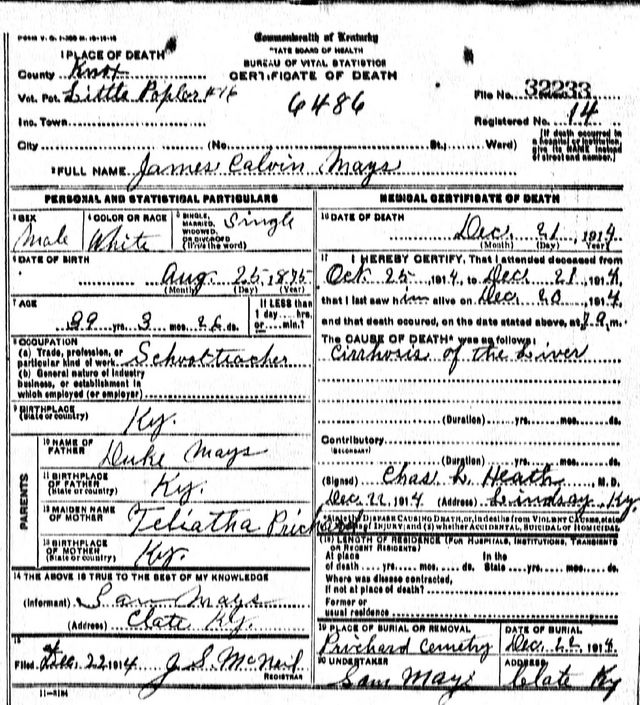 FORM V. S. 1-
Commonwealth of Kentucky
STATE BOARD OF HEALTH
BUREAU OF VITAL STATISTICS
CERTIFICATE OF DEATH
1 PLACE OF DEATH
County Knox
Vot. Pct. Little Popler #16
6486
File No. 32233
Registered No. 14
Inc. Town
[If death occurred in a hospital or institution, give its NAME instead of street and number.]
City (No. St.; Ward)
2 FULL NAME James Calvin Mays
PERSONAL AND STATISTICAL PARTICULARS
3 SEX Male
4 COLOR OR RACE White
5 SINGLE, MARRIED, WIDOWED OR DIVORCED (Write the word) Single
6 DATE OF BIRTH Aug 25, 1875
(Month) (Day) (Year)
7 AGE 39 yrs. 3 mos. 26 ds.
If LESS than 1 day ... hrs. or ... min.?
8 OCCUPATION
(a) Trade, profession, or particular kind of work Schoolteacher
(b) General nature of industry business, or establishment in which employed (or employer)
9 BIRTHPLACE (State or country) Ky.
PARENTS
10 NAME OF FATHER Duke Mays
11 BIRTHPLACE OF FATHER (State or country) Ky.
12 MAIDEN NAME OF MOTHER Teliatha Prichard
13 BIRTHPLACE OF MOTHER (State or country) Ky.
14 THE ABOVE IS TRUE TO THE BEST OF MY KNOWLEDGE
(Informant) Sam Mays
(Address) Clate Ky.
15
Filed Dec. 22 1914 J. S. McNeil
REGISTRAR
11-3184
MEDICAL CERTIFICATE OF DEATH
16 DATE OF DEATH Dec. 21, 1914
(Month) (Day) (Year)
17 I HEREBY CERTIFY, That I attended deceased from
Oct 25, 1914, to Dec. 21 1914,
that I last saw him alive on Dec 20, 1914
and that death occured, on the date stated above, at m.
The CAUSE OF DEATH* was as follows:
Cirrhosis of the Liver
(Duration) yrs. mos. ds.
Contributory
(SECONDARY)
(Duration) yrs. mos. ds.
(Signed) Chas. L. Heath M. D.
Dec 22, 1914 (Address) Lindsay, Ky.
*State the DISEASE CAUSING DEATH, or, in deaths from VIOLENT CAUSES, state
OF INJURY; and (2) whether ACCIDENTAL, SUICIDAL or HOMICIDAL
(18) LENGTH OF RESIDENCE (FOR HOSPITALS, INSTITUTIONS, TRANSIENTS OR RECENT RESIDENTS)
At place of death yrs. mos. ds. In the State yrs. mos. ds.
Where was disease contracted,
If not at place of death?
Former or usual residence
19 PLACE OF BURIAL OR REMOVAL Prichard Cemetry
DATE OF BURIAL Dec. 22, 1914
20 UNDERTAKER Sam Mays
ADDRESS Clate Ky